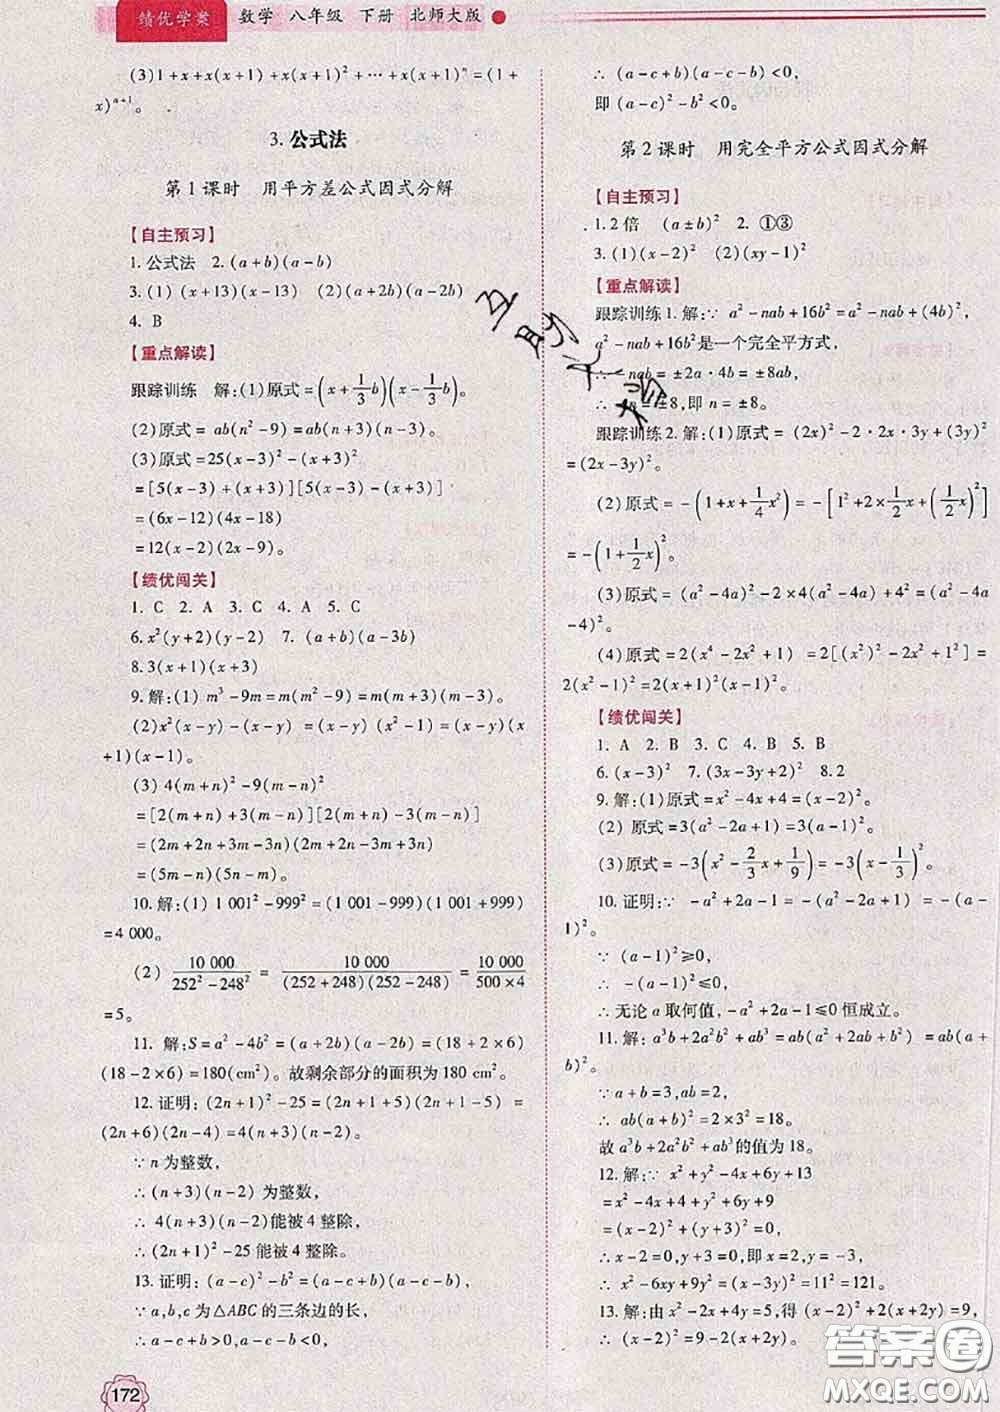 绩优学案 数学 八年级 下册 北师大版
(3)1+x+x(x+1)+x(x+1)²+…+x(x+1)ⁿ=(1+
x)ⁿ⁺¹。
3. 公式法
第1课时 用平方差公式因式分解
【自主预习】
1. 公式法 2. (a+b)(a-b)
3. (1) (x+13)(x-13) (2)(a+2b)(a-2b)
4. B
【重点解读】
跟踪训练 解:(1)原式=(x+1/3b)(x-1/3b)。
(2)原式= ab(n²-9)=ab(n+3)(n-3)。
(3)原式=25(x-3)²-(x+3)²
=[5(x-3)+(x+3)][5(x-3)-(x+3)]
=(6x-12)(4x-18)
=12(x-2)(2x-9)。
【绩优闯关】
1. C 2. A 3. A 4. A 5. C
6. x²(y+2)(y-2) 7. (a+b)(a-3b)
8. 3(x+1)(x+3)
9. 解:(1) m³-9m=m(m²-9)=m(m+3)(m-3)。
(2)x²(x-y)-(x-y)=(x-y)(x²-1)=(x-y)(x
+1)(x-1)。
(3) 4(m+n)²-9(m-n)²
=[2(m+n)+3(m-n)][2(m+n)-3(m-n)]
=(2m+2n+3m-3n)(2m+2n-3m+3n)
=(5m-n)(5n-m)。
10. 解:(1) 1 001²-999²=(1 001-999)(1 001+999)
=4 000。
(2) 10 000/(252²-248²) = 10 000/((252+248)(252-248)) = 10 000/(500×4)
=5。
11. 解:S=a²-4b²=(a+2b)(a-2b)=(18+2×6)
(18-2×6)=180(cm²)。故剩余部分的面积为180 cm²。
12. 证明:(2n+1)²-25=(2n+1+5)(2n+1-5)=
(2n+6)(2n-4)=4(n+3)(n-2)。
∵n为整数,
∴(n+3)(n-2)为整数,
∴ 4(n+3)(n-2)能被4整除。
∴(2n+1)²-25能被4整除。
13. 证明:(a-c)²-b²=(a-c+b)(a-c-b),
∵a,b,c为△ABC的三条边的长,
∴a-c+b>0,a-c-b<0,
172
∴ (a-c+b)(a-c-b)<0,
即(a-c)²-b²<0。
第2课时 用完全平方公式因式分解
【自主预习】
1. 2倍 (a±b)² 2. ①③
3. (1)(x-2)² (2)(xy-1)²
【重点解读】
跟踪训练1. 解:∵ a²-nab+16b²=a²-nab+(4b)²,
a²-nab+16b²是一个完全平方式,
∴ -nab=±2a·4b=±8ab,
∴ -n=±8,即n=±8。
跟踪训练2. 解:(1)原式= (2x)²-2·2x·3y+(3y)²
=(2x-3y)²。
(2)原式=-(1+x+1/4x²)=-[1²+2×1/2x+(1/2x)²]
=-(1+1/2x)²。
(3)原式= (a²-4a)²-2×4(a²-4a)+4²=(a²-4a
-4)²。
(4)原式=2(x⁴-2x²+1) =2[(x²)²-2x²+1²]=
2(x²-1)²=2(x+1)²(x-1)²。
【绩优闯关】
1. A 2. B 3. B 4. A 5. B
6. (x-3)² 7. (3x-3y+2)² 8. 2
9. 解:(1)原式=x²-4x+4=(x-2)²。
(2) 原式=3(a²-2a+1)=3(a-1)²。
(3)原式=-3(x²-2/3x+1/9)=-3(x-1/3)²。
10. 证明:∵ -a²+2a-1= -(a²-2a+1)=-(a-
1)²。
∵ (a-1)²≥0,
∴ -(a-1)²≤0,
∴ 无论a取何值,-a²+2a-1≤0恒成立。
11. 解:a³b+2a²b²+ab³=ab(a²+2ab+b²)=ab(a+
b)²。
∵ a+b=3,ab=2,
∴ ab(a+b)²=2×3²=18。
故a³b+2a²b²+ab³的值为18。
12. 解:∵ x²+y²-4x+6y+13
=x²-4x+4+y²+6y+9
=(x-2)²+(y+3)²=0,
∴x-2=0,y+3=0,即x=2,y=-3,
∴ x²-6xy+9y²=(x-3y)²=11²=121。
13. 解:由x²-2x+4y=5,得(x-2)²+2(x+2y)=9,
∴ (x-2)²=9-2(x+2y)。
答案圈
MXQE.COM